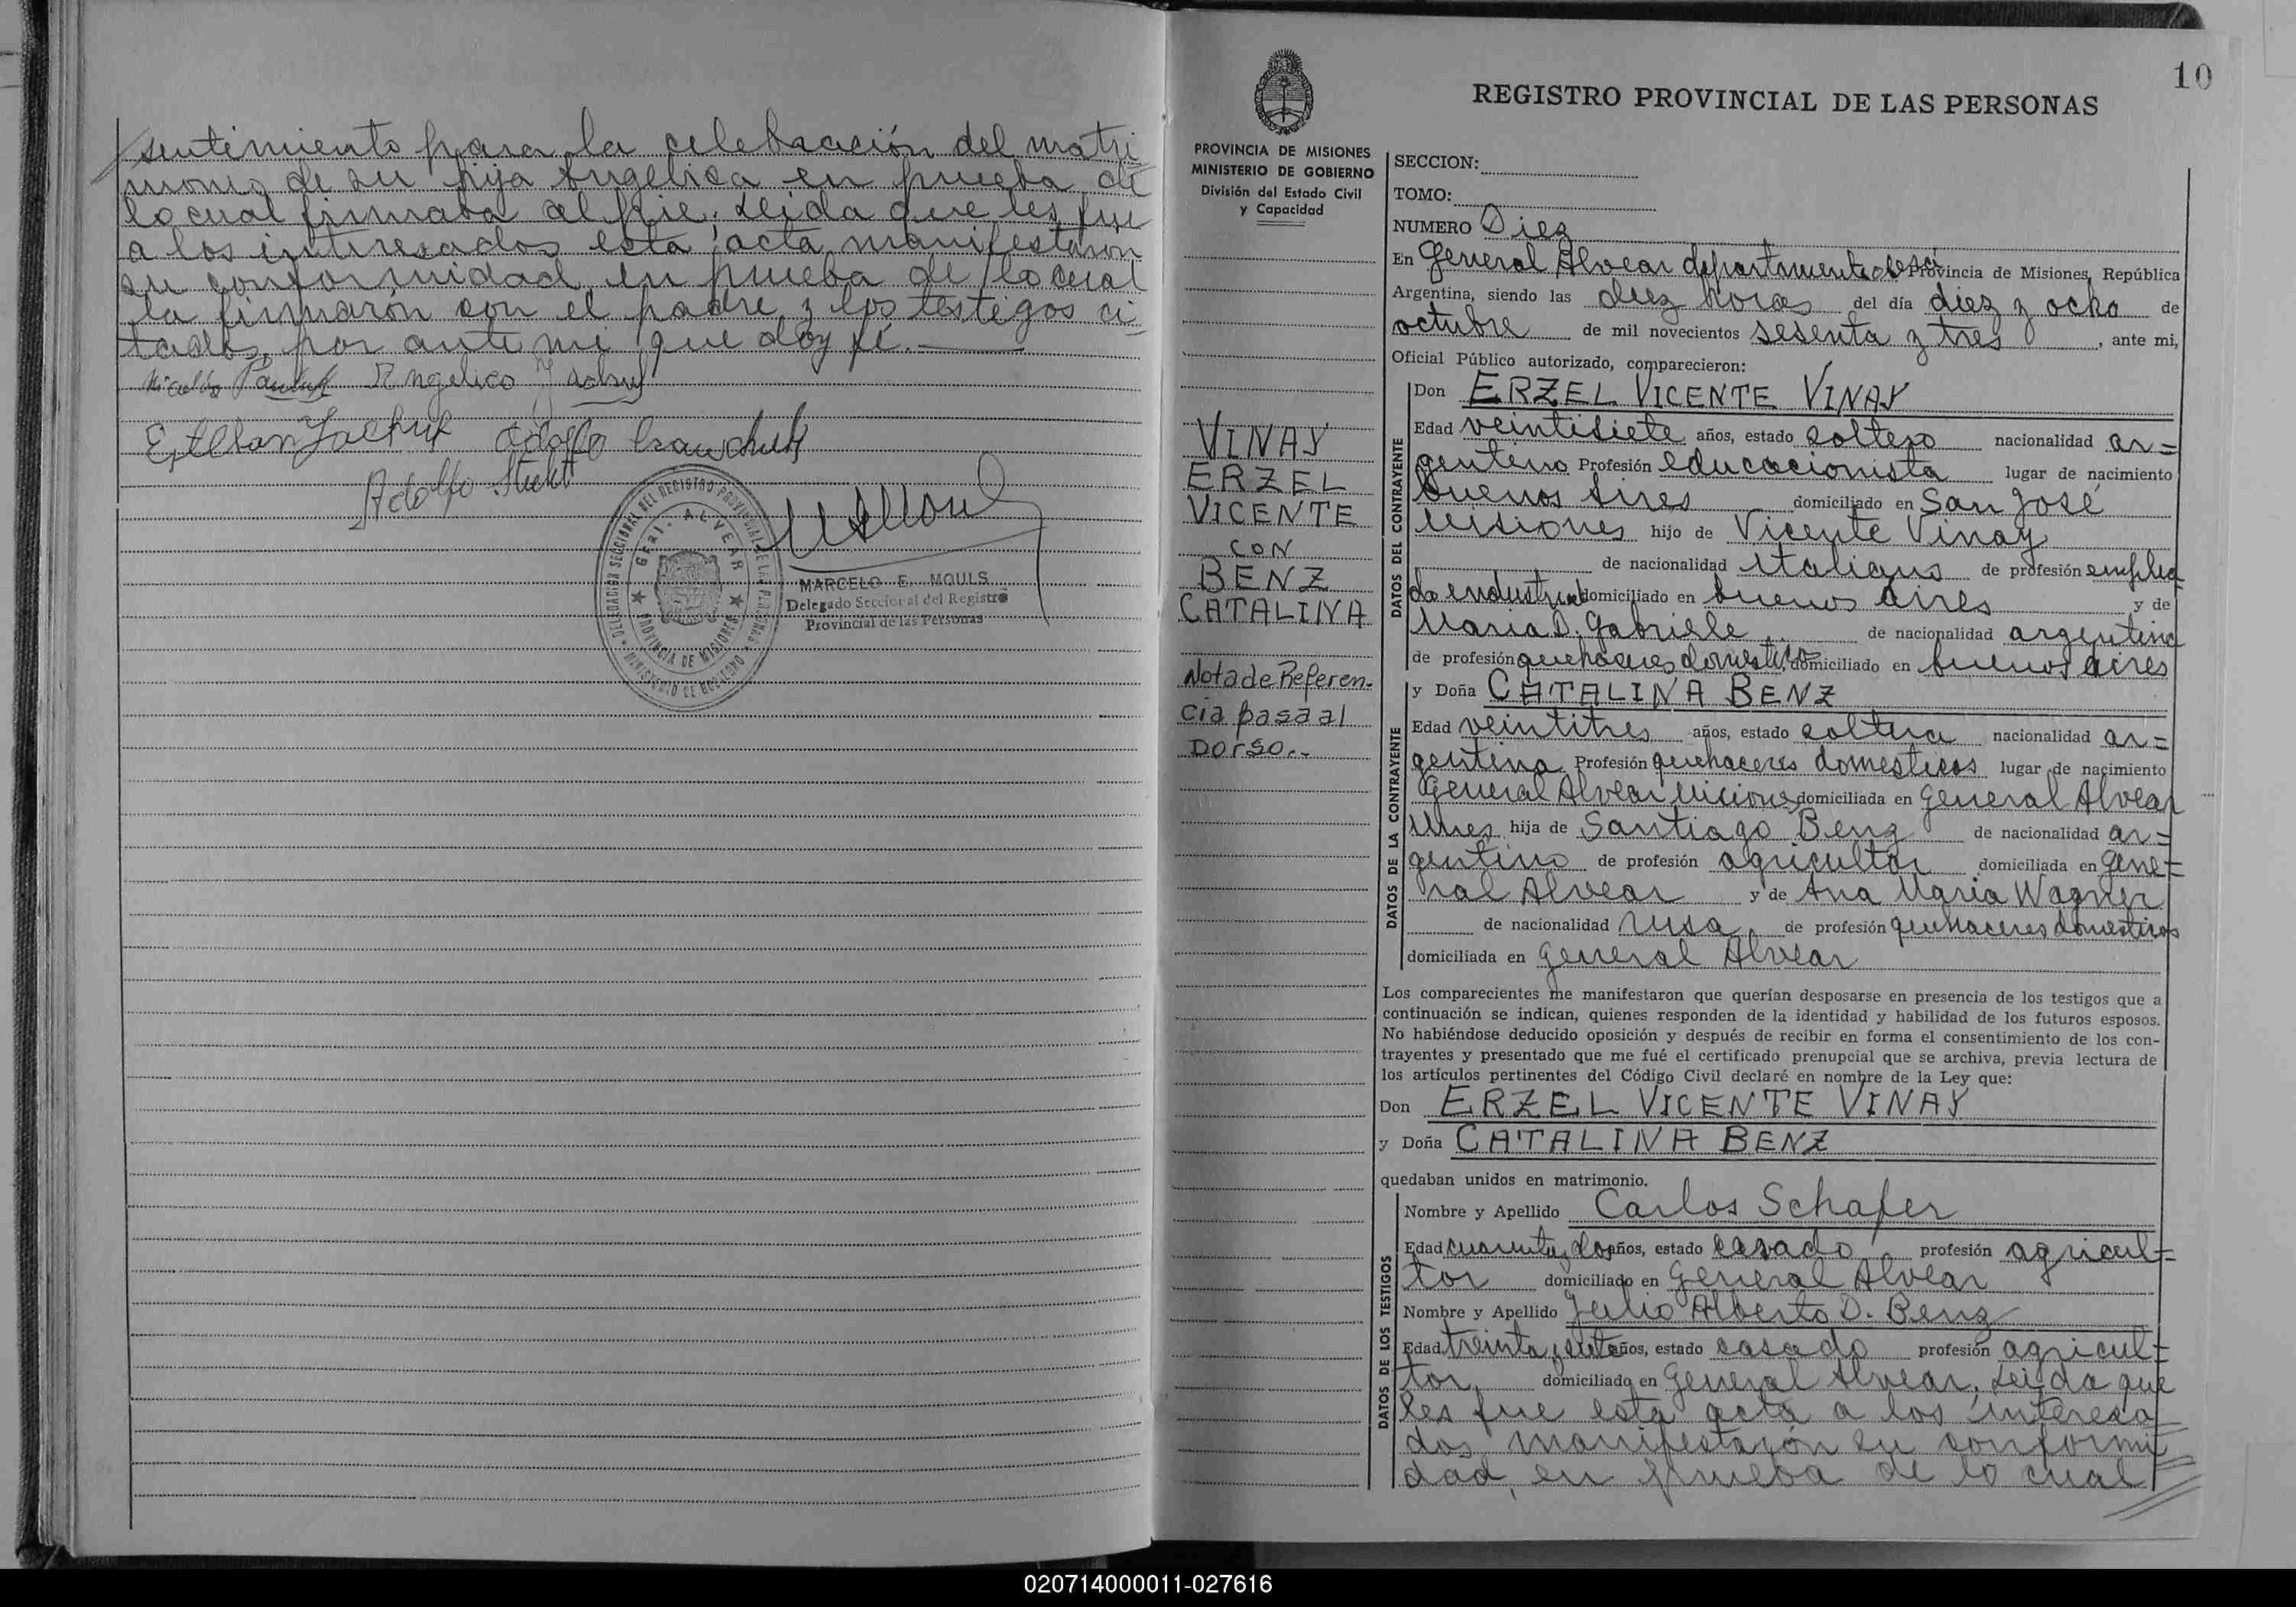 sentimiento para la celebración del matri
monio de su hija Angelica en prueba de
lo cual firmaba al pie. Leida que les fue
a los interesados esta acta manifestaron
su conformidad en prueba de lo cual
la firmarón con el padre y los testigos ci
tados, por ante mi que doy fé.
Angelica
Esteban Jachuk Adolfo
Adolfo
DELEGACION SECCIONAL DEL REGISTRO PROVINCIAL DE LAS PERSONAS
GRAL. ALVEAR
PROVINCIA DE MISIONES
MINISTERIO DE GOBIERNO
MARCELO E. MOULS
Delegado Seccional del Registro
Provincial de las Personas
10
REGISTRO PROVINCIAL DE LAS PERSONAS
PROVINCIA DE MISIONES
MINISTERIO DE GOBIERNO
División del Estado Civil
y Capacidad
VINAY
ERZEL
VICENTE
CON
BENZ
CATALINA
Nota de Referen-
cia pasa al
Dorso..
SECCION:
TOMO:
NUMERO Diez
En General Alvear departamento Provincia de Misiones, República
Argentina, siendo las diez horas del día diez y ocho de
octubre de mil novecientos sesenta y tres, ante mi,
Oficial Público autorizado, comparecieron:
DATOS DEL CONTRAYENTE
Don ERZEL VICENTE VINAY
Edad veintisiete años, estado soltero nacionalidad ar=
gentino Profesión educacionista lugar de nacimiento
Buenos Aires domiciliado en San José
Misiones hijo de Vicente Vinay
de nacionalidad Italiano de profesión emplea
do industrial domiciliado en Buenos Aires y de
Maria D. Gabrielle de nacionalidad argentina
de profesión quehaceres domestico domiciliado en Buenos Aires
DATOS DE LA CONTRAYENTE
y Doña CATALINA BENZ
Edad veintitres años, estado soltera nacionalidad ar=
gentina Profesión quehaceres domesticos lugar de nacimiento
General Alvear Misiones domiciliada en General Alvear
Mnes hija de Santiago Benz de nacionalidad ar=
gentino de profesión agricultor domiciliada en Gene=
ral Alvear y de Ana Maria Wagner
de nacionalidad rusa de profesión quehaceres domesticos
domiciliada en General Alvear
Los comparecientes me manifestaron que querían desposarse en presencia de los testigos que a
continuación se indican, quienes responden de la identidad y habilidad de los futuros esposos.
No habiéndose deducido oposición y después de recibir en forma el consentimiento de los con-
trayentes y presentado que me fué el certificado prenupcial que se archiva, previa lectura de
los artículos pertinentes del Código Civil declaré en nombre de la Ley que:
Don ERZEL VICENTE VINAY
y Doña CATALINA BENZ
quedaban unidos en matrimonio.
DATOS DE LOS TESTIGOS
Nombre y Apellido Carlos Schafer
Edad cuarenta y dos años, estado casado profesión agricul=
tor domiciliado en General Alvear
Nombre y Apellido Julio Alberto D. Benz
Edad treinta y siete años, estado casado profesión agricul=
tor, domiciliado en General Alvear. Leida que
les fue esta acta a los interesa
dos manifestarón su conformi
dad, en prueba de lo cual
020714000011-027616